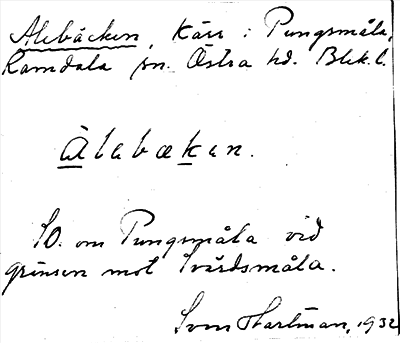 Alebäcken, Kärr i Pungsmåla,
Ramdala sn. Östra hd. Blek.l.
Àlebæken.
SO. om Pungsmåla vid
gränsen mot Svärdsmåla.
Sven Hartman, 1932